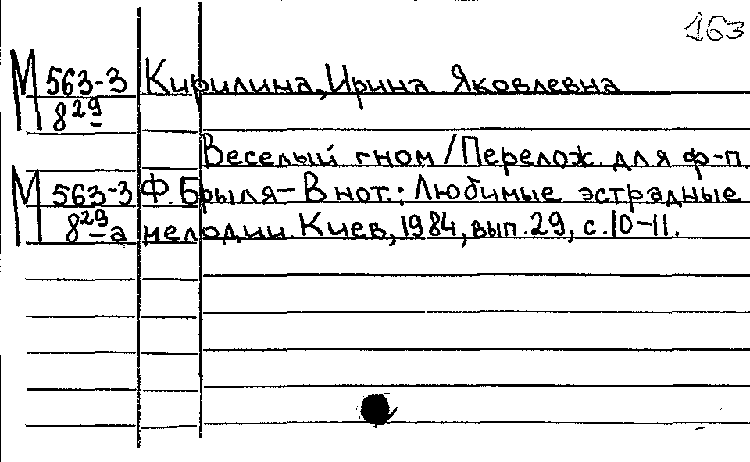 163
М 563-3 Кирилина, Ирина Яковлевна
8 29
Веселый гном / Перелож. для ф-п.
М 563-3 Ф. Брыля – В нот.: Любимые эстрадные
8 29-а мелодии. Киев, 1984, вып. 29, с. 10-11.